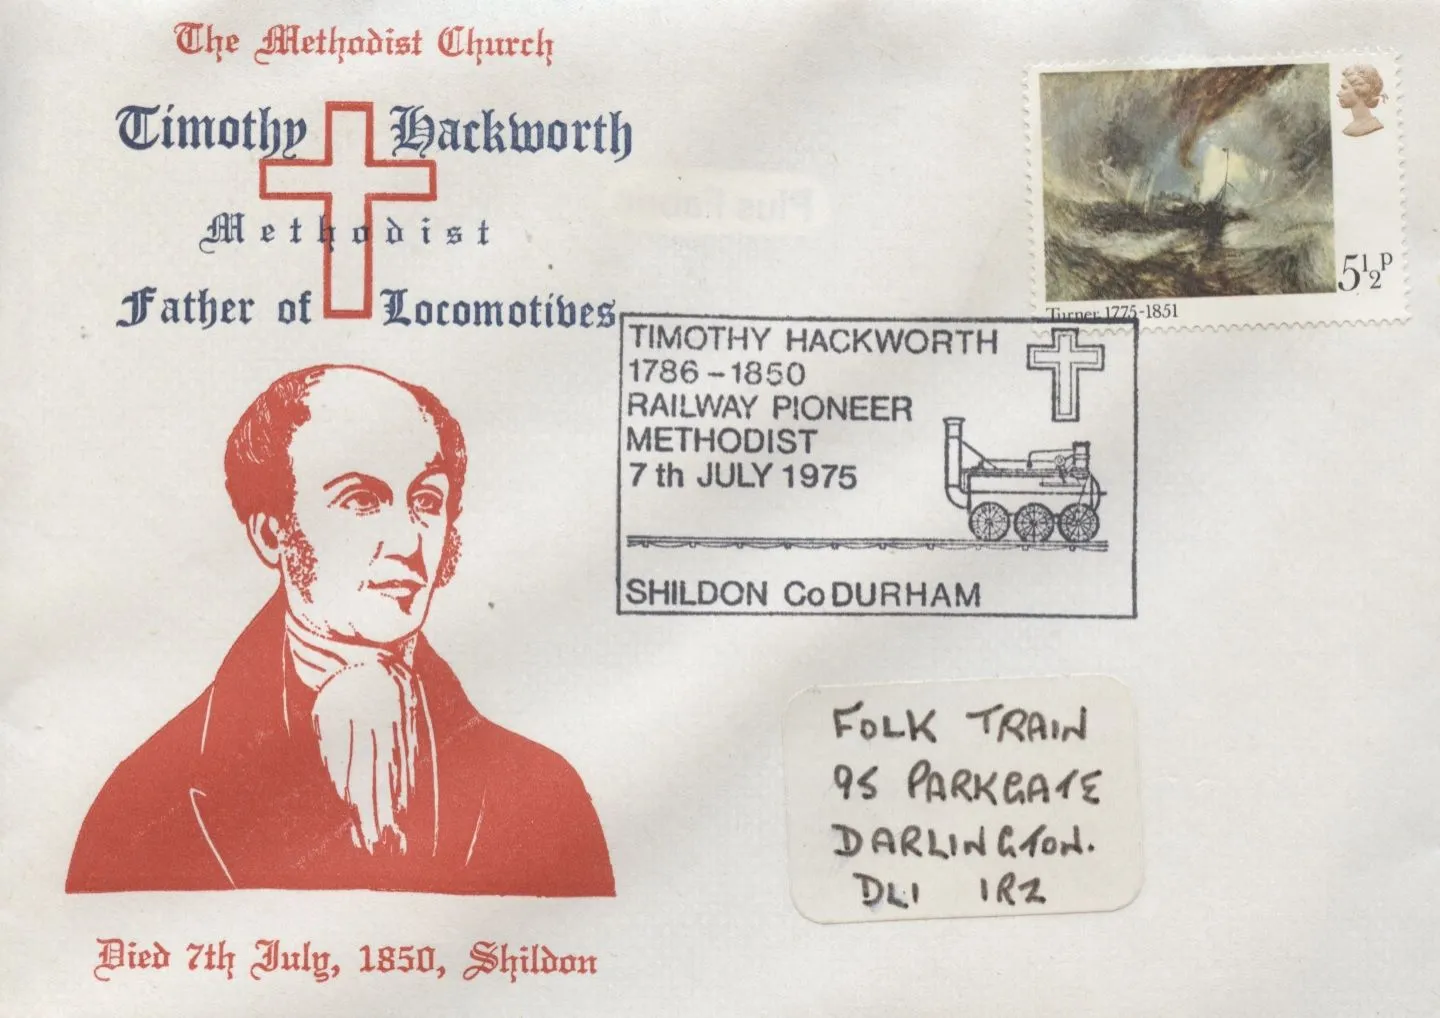 The Methodist Church
Timothy Hackworth
Methodist
Father of Locomotives
Turner 1775-1851
5½P
TIMOTHY HACKWORTH
1786 – 1850
RAILWAY PIONEER
METHODIST
7 th JULY 1975
SHILDON Co DURHAM
FOLK TRAIN
95 PARKGATE
DARLINGTON.
DL1 1RZ
Died 7th July, 1850, Shildon